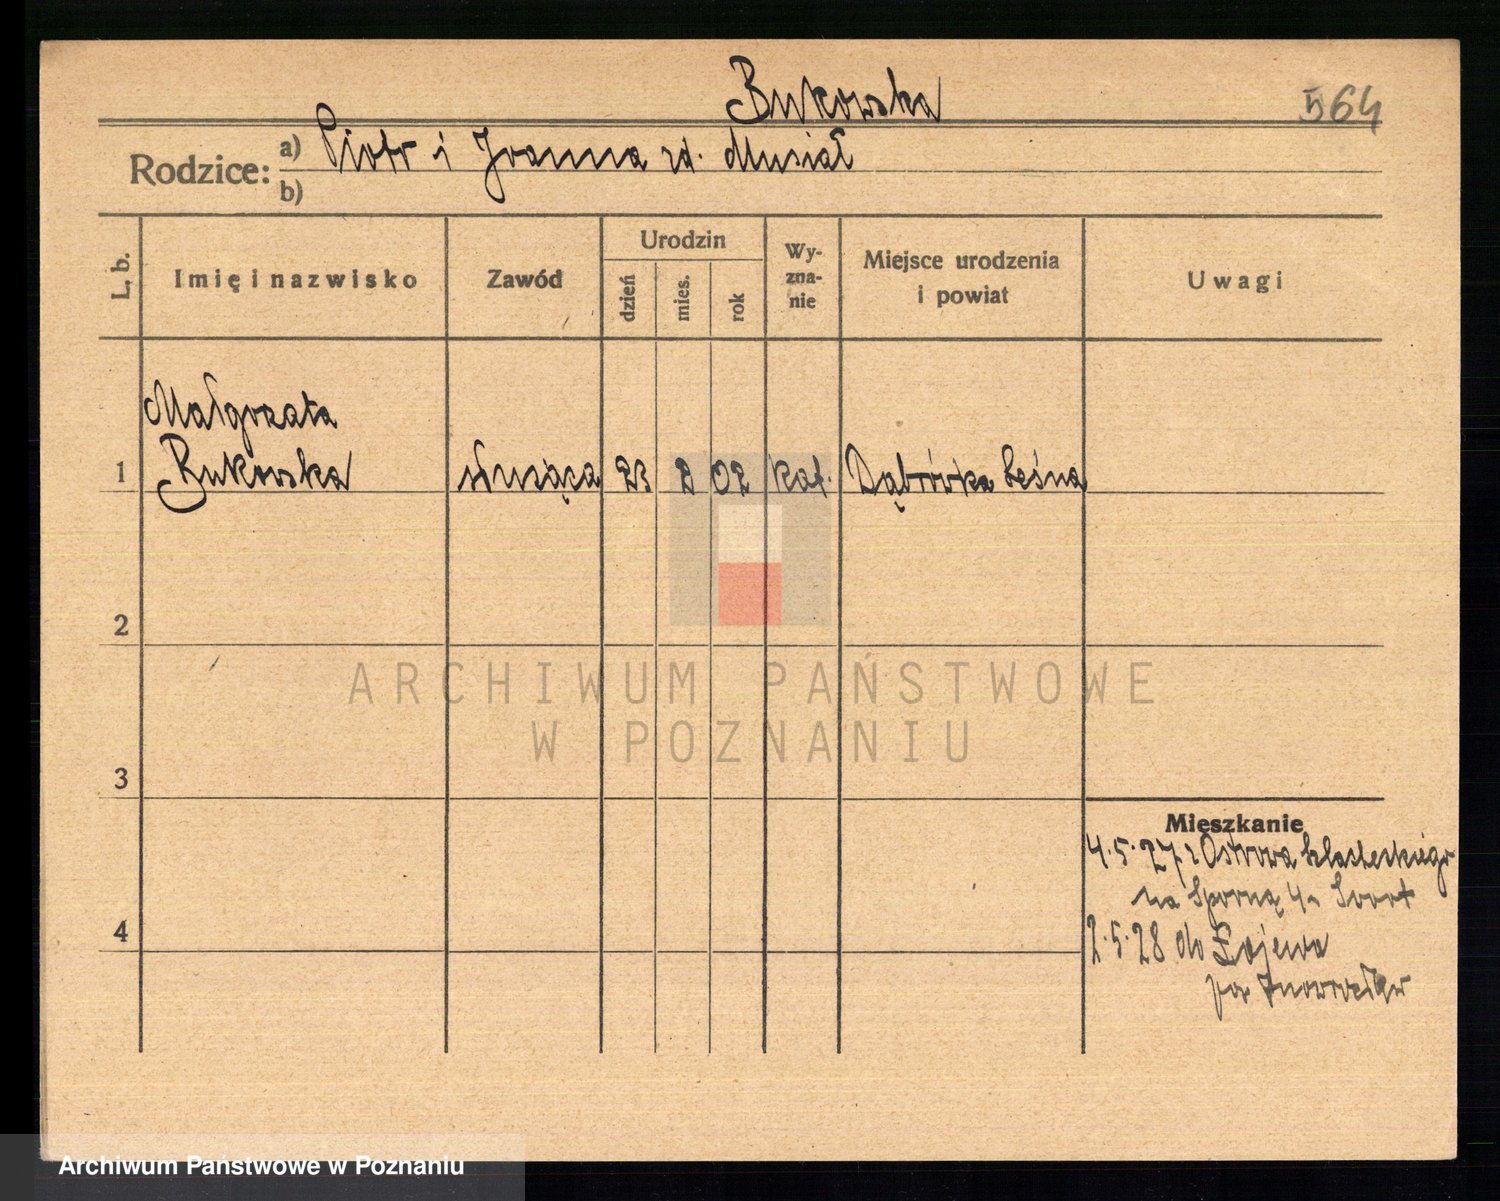 Bukowska
564
Rodzice: a) Piotr i Joanna zd. Musiał
b)
L. b.
Imię i nazwisko
Zawód
Urodzin
dzień
mies.
rok
Wy-
zna-
nie
Miejsce urodzenia
i powiat
Uwagi
Małgorzata
1 Bukowska służąca 23 2 02 kat. Dąbrówka Leśna
2
ARCHIWUM PAŃSTWOWE
W POZNANIU
3
Mieszkanie
4.5.27 z Ostrowa
na Sporną 4a
4
2.5.28 do Łojewa
pow Inowrocław
Archiwum Państwowe w Poznaniu